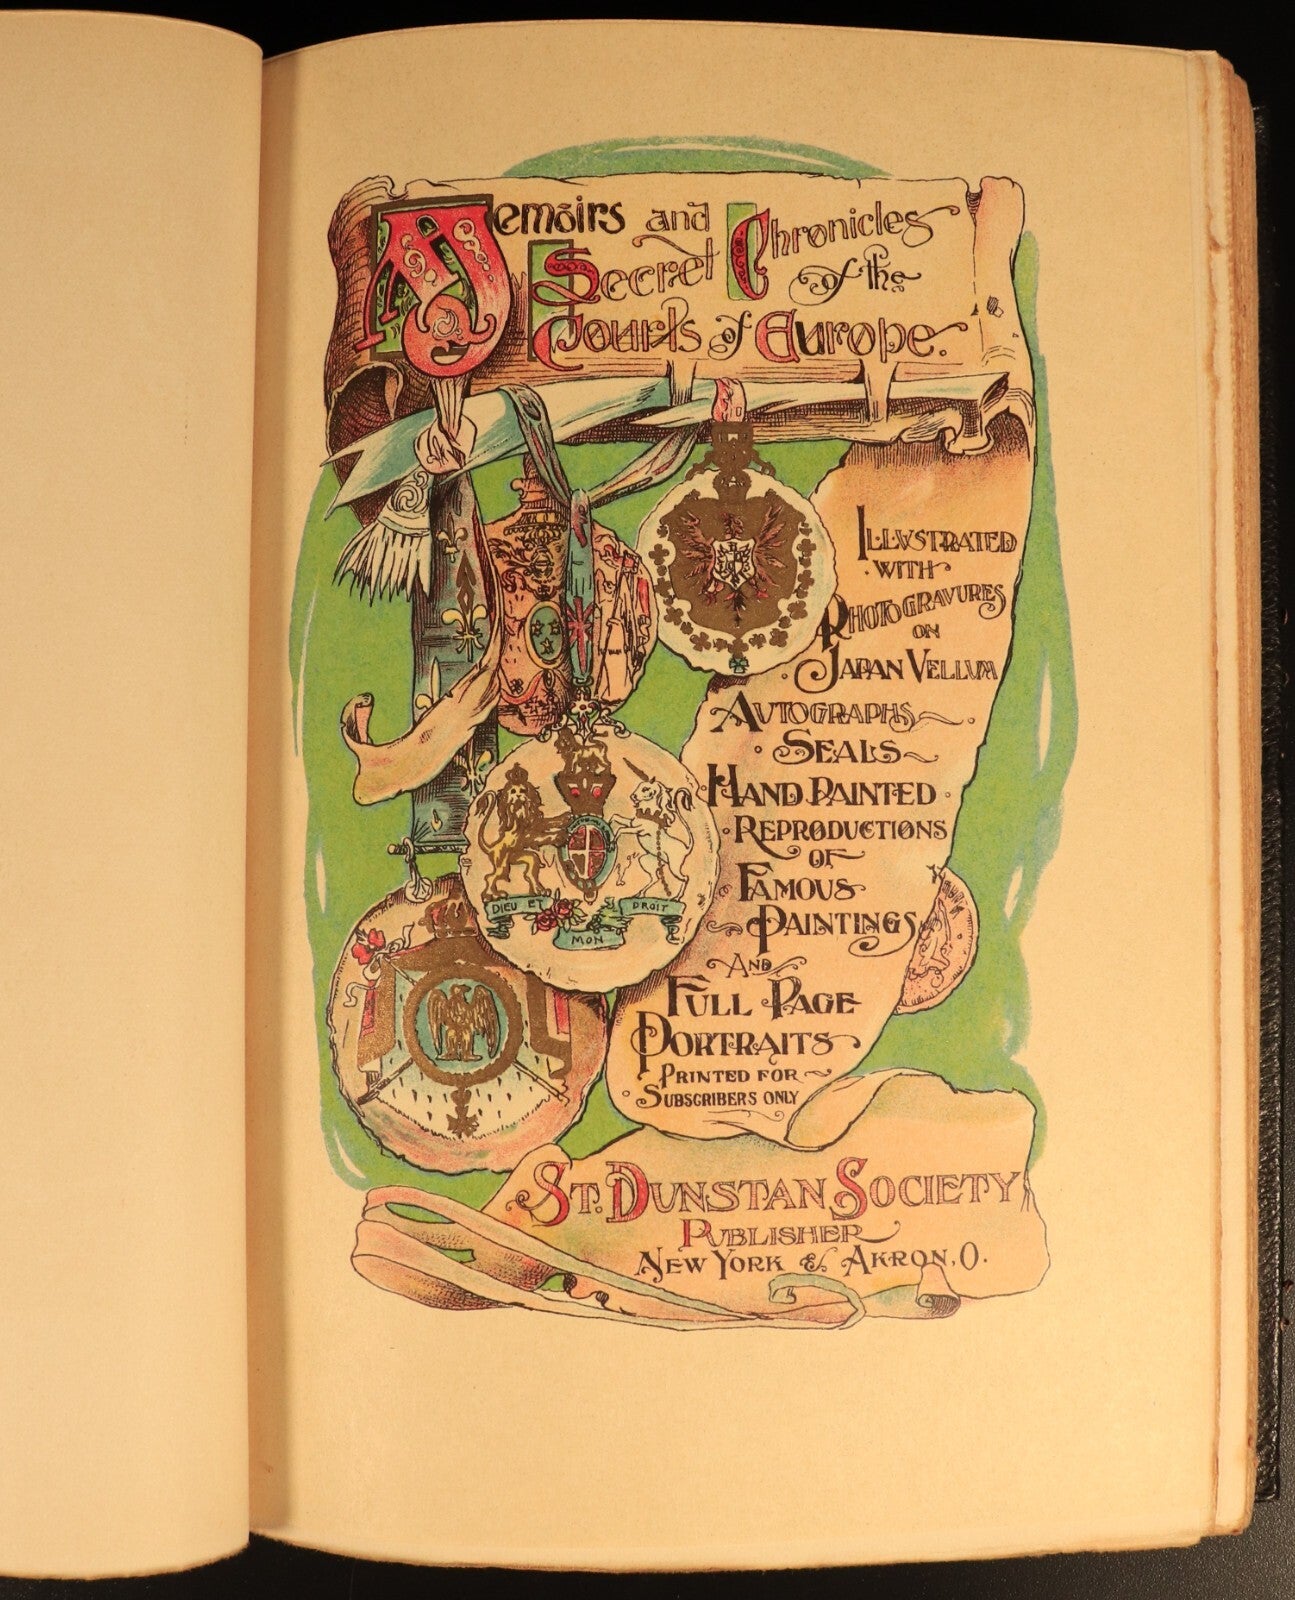 Memoirs and
Secret Chronicles
of the
Courts of Europe.
ILLUSTRATED
WITH
PHOTOGRAVURES
ON
JAPAN VELLUM
AUTOGRAPHS
SEALS
HAND PAINTED
REPRODUCTIONS
OF
FAMOUS
PAINTINGS
AND
FULL PAGE
PORTRAITS
PRINTED FOR
SUBSCRIBERS ONLY
DIEU ET
MON
DROIT
ST. DUNSTAN SOCIETY
PUBLISHER
NEW YORK & AKRON, O.